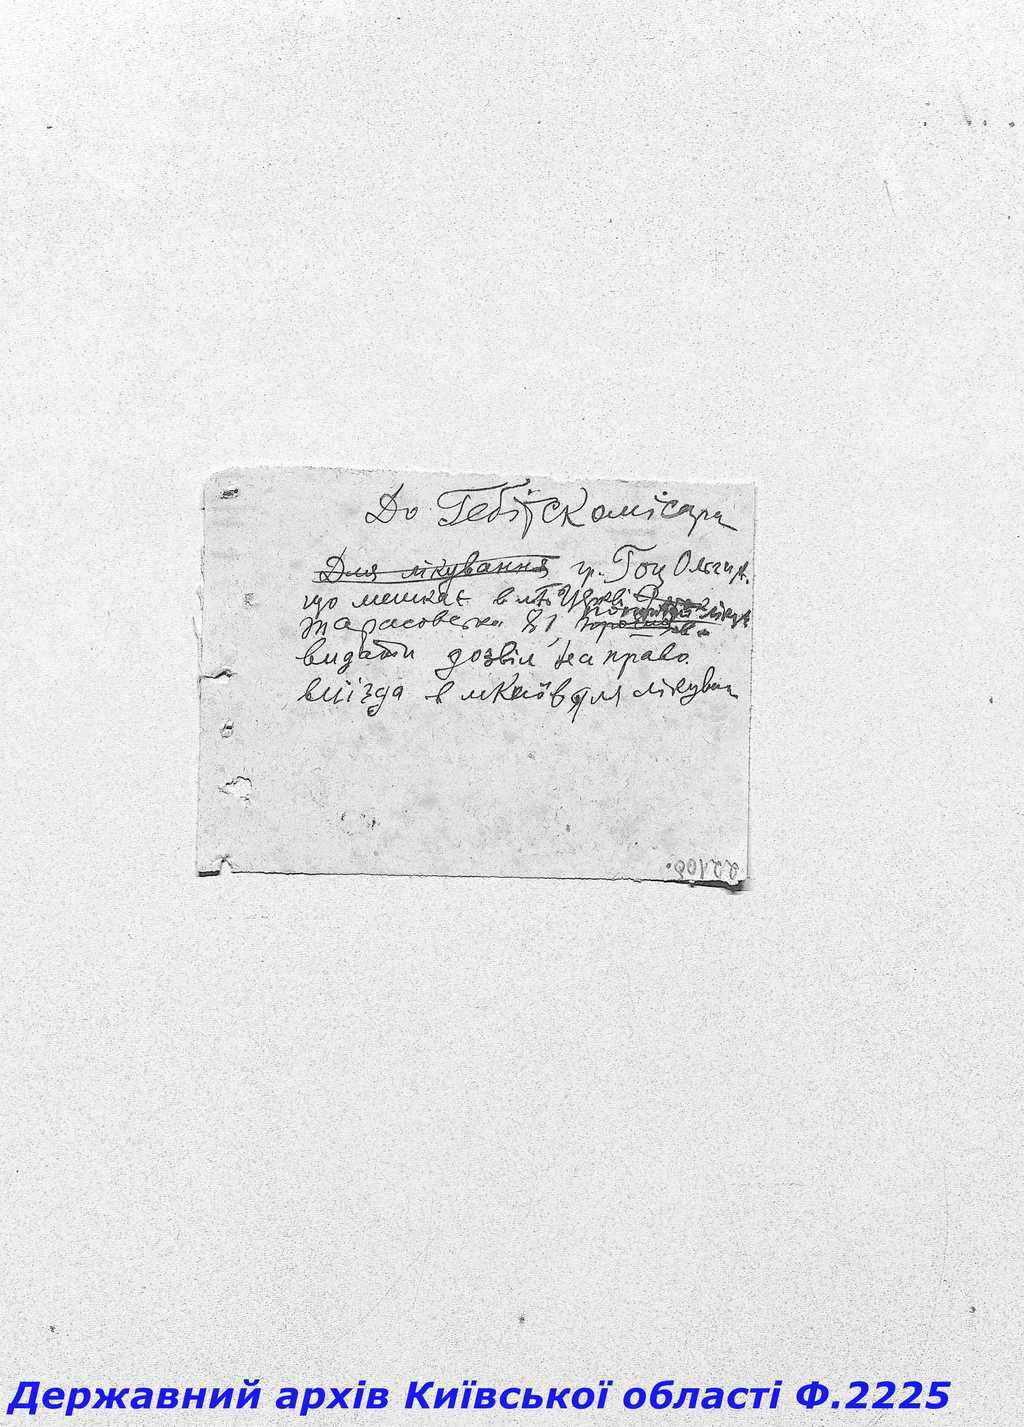 До Гебітскомісара
Для лікування гр. Гоц Ольги А.
що мешкає в м Б Церкві
Тарасовська 81,
видати дозвіл на право
виїзда в м Київ для лікуван
22100.
Державний архів Київської області Ф.2225